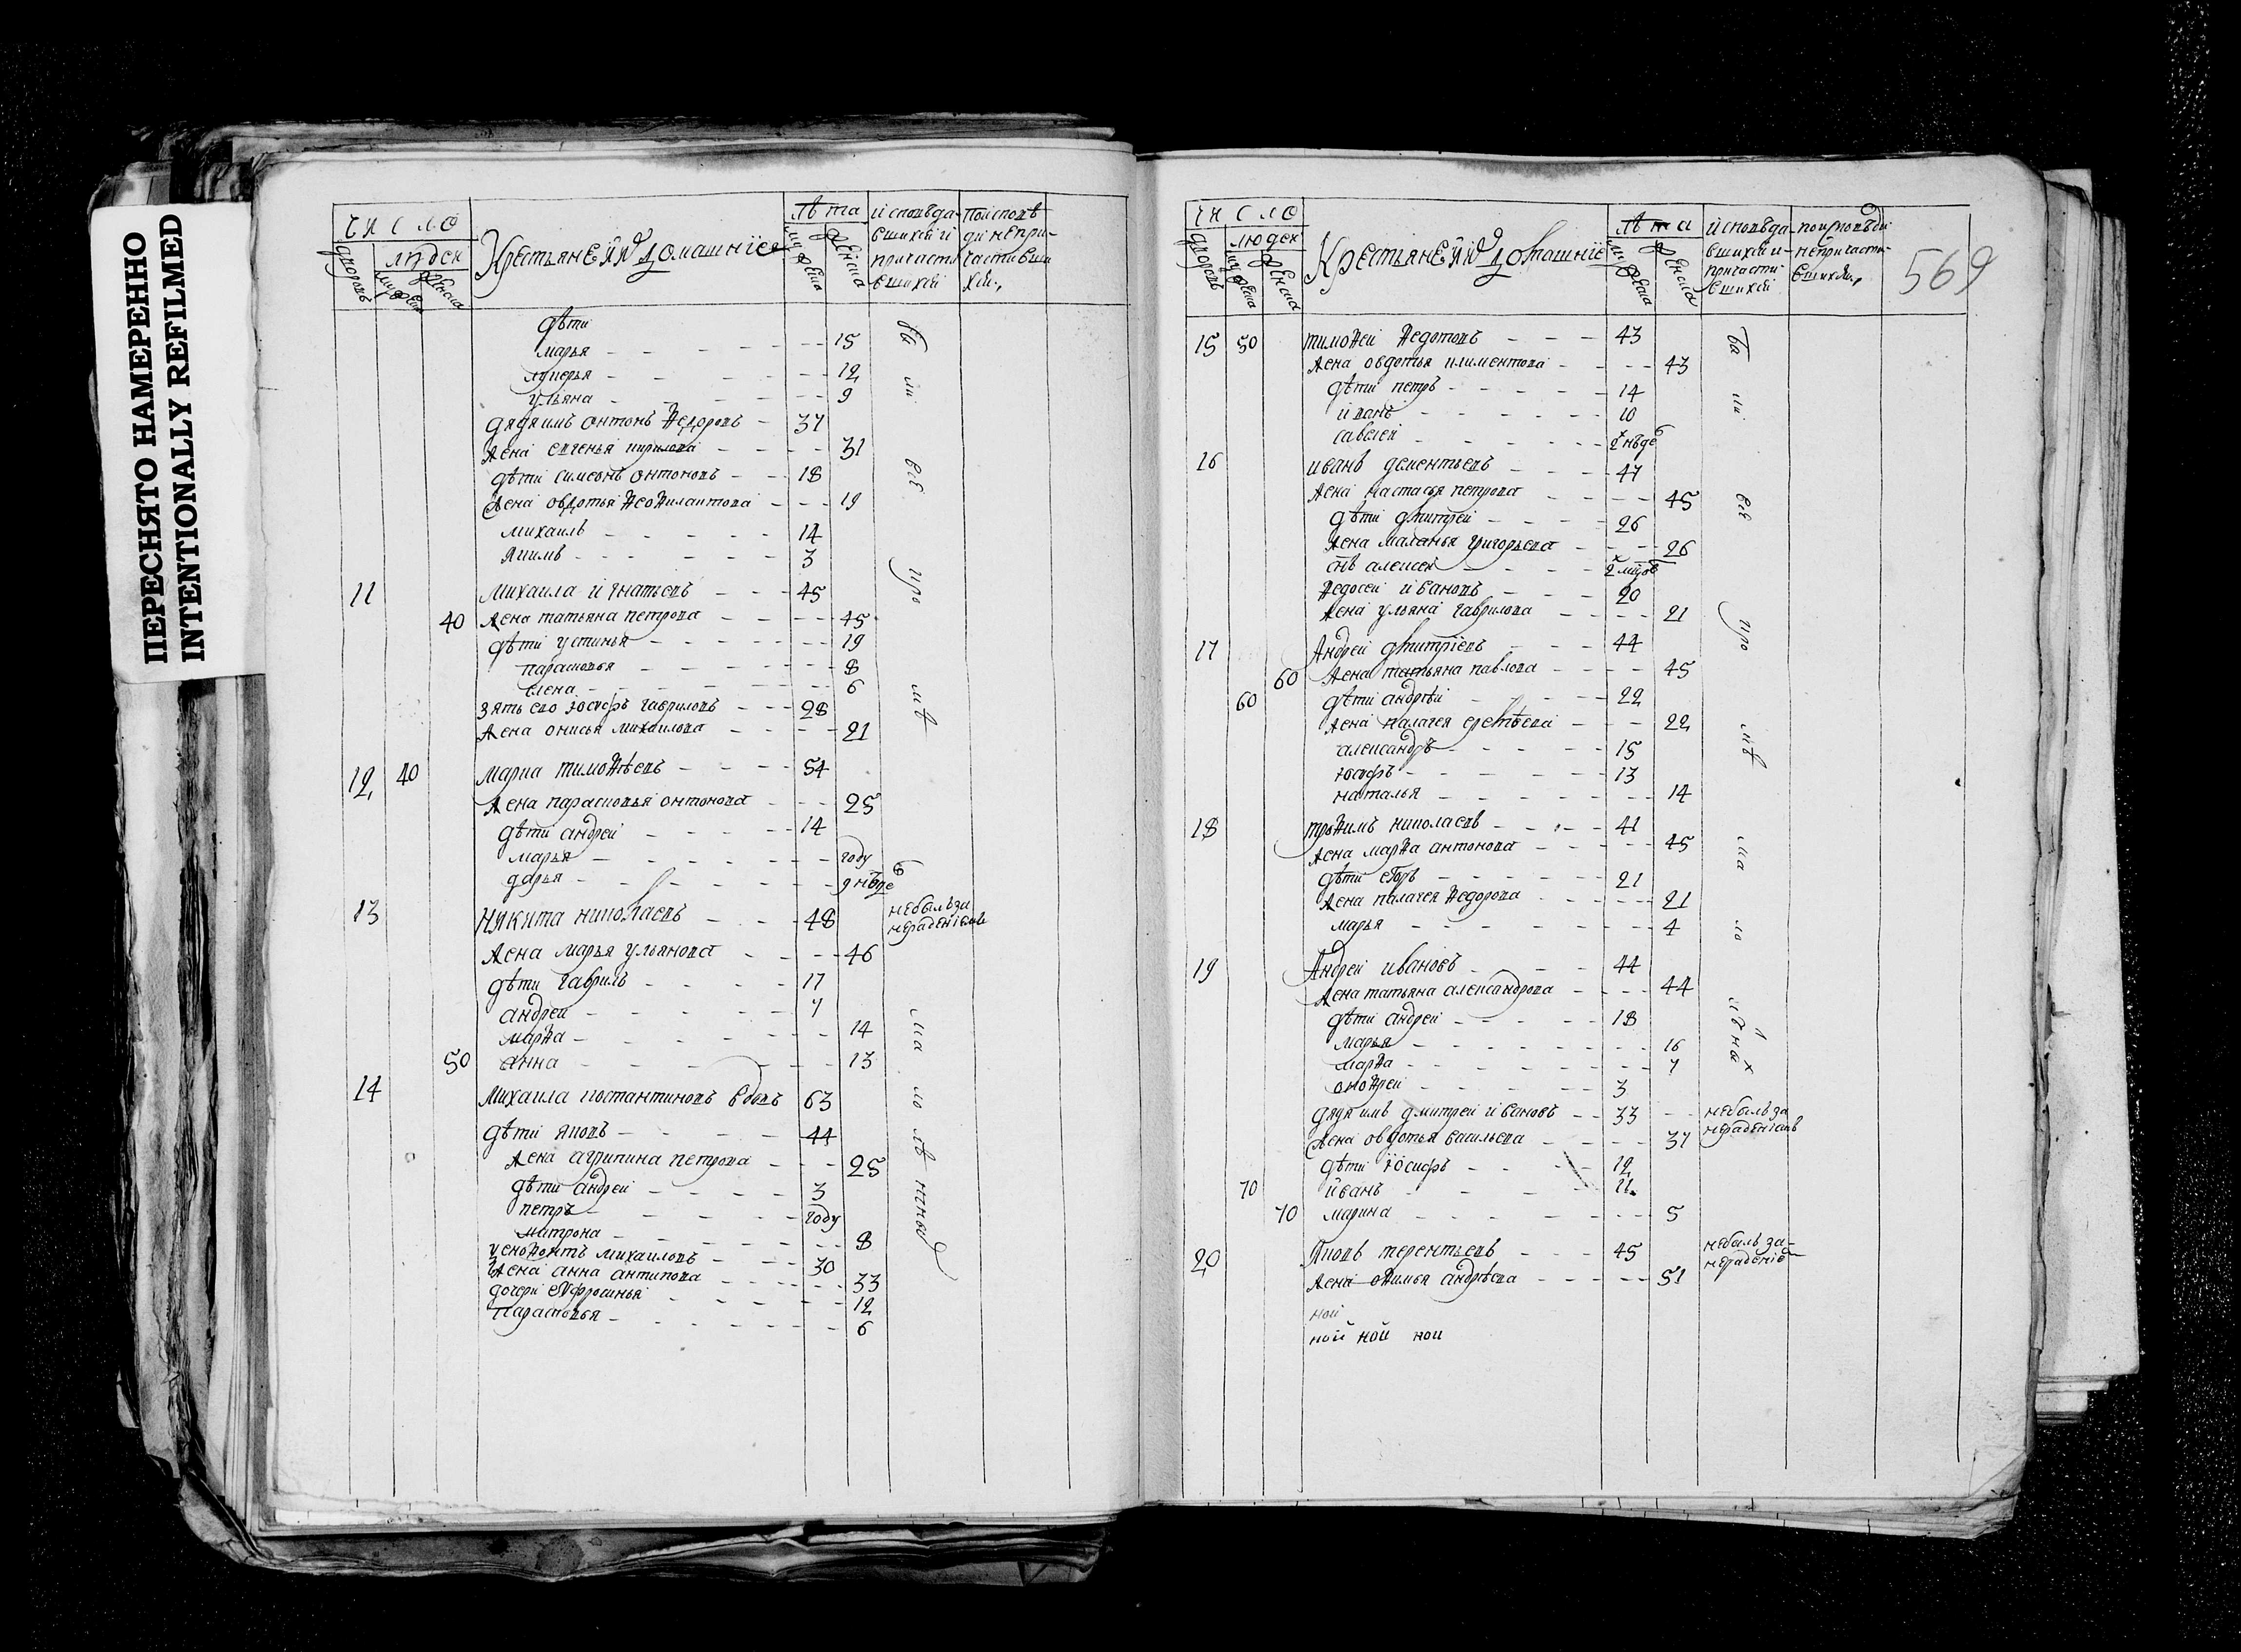 ПЕРЕСНЯТО НАМЕРЕННО
INTENTIONALLY REFILMED
число
людей
дворовъ
мужеска
женска
Крестьяне и ихъ домашнiе
лѣта
мужеска
женска
исповѣда-
вшихся и
причасти
вшихся
по исповѣ
ди непри-
частивши
хся
дѣти
марья 15
лукерья 12
ульяна 9
дядя имъ антонъ ѳедоровъ 37
жена евгенья кирилова 31
дѣти симеонъ антоновъ 18
жена овдотья ѳеофилактова 19
михаилъ 14
якимъ 3
11 михаила игнатьевъ 45
40 жена татьяна петрова 45
дѣти устинья 19
парасковья 8
елена 6
зять его юсифъ гавриловъ 28
жена онисья михаилова 21
12 40 марка тимоѳѣевъ 54
жена парасковья онтонова 25
дѣти андрей 14
марья году
дарья 9 нѣде
13 никита николаевъ 48 небылъ за
нерадѣнiемъ
жена марья ульянова 46
дѣти гаврилъ 17
андрей 7
марѳа 14
50 анна 13
14 михаила костантиновъ вдовъ 63
дѣти яковъ 44
жена агрипина петрова 25
дѣти андрей 3
петръ году
матрона 8
ксеноѳонтъ михаиловъ 30
жена анна антипова 33
дочери еѵфросинья 12
парасковья 6
бы
ли
всѣ
кро
мѣ
ма
ло
лѣ
тныхъ
569
число
людей
дворовъ
мужеска
женска
Крестьяне и ихъ домашнiе
лѣта
мужеска
женска
исповѣда
вшихся и
причасти
вшихся
по исповѣди
непричасти
вшихся
15 50 тимоѳей ѳедотовъ 43
жена овдотья климентова 43
дѣти петръ 14
иванъ 10
савелей 2 нѣде
16 иванъ дементьевъ 47
жена настасья петрова 45
дѣти дмитрей 26
жена маланья григорьева 26
снъ алексей 2 мцов
ѳедосей ивановъ 20
жена ульяна гаврилова 21
17 Андрей дмитрiевъ 44
60 жена татьяна павлова 45
60 дѣти андрѣй 22
жена палагея 22
александръ 15
юсифъ 13
наталья 14
18 троѳимъ николаевъ 41
жена марѳа антонова 45
дѣти егоръ 21
жена палагея ѳедорова 21
марья 4
19 Андрей ивановъ 44
жена татьяна александрова 44
дѣти андрей 18
марья 16
марѳа 7
оноѳрей 3
дядя имъ дмитрей ивановъ 33 небылъ за
нерадѣнiемъ
жена овдотья васильева 37
дѣти iосифъ 12
70 иванъ 11
70 марина 5
20 Яковъ терентьевъ 45 небылъ за-
нерадѣнiе
жена еѳимья андрѣева 51
кой
кой кой кой
бы
ли
всѣ
кро
мѣ
ма
ло
лѣтных